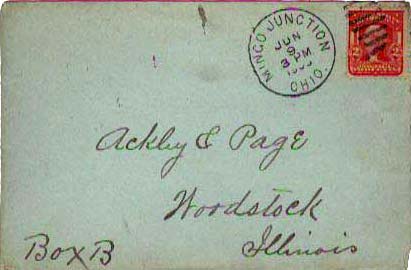 MINGO JUNCTION OHIO.
JUN
9
PM
2 2
Ackley & Page
Woodstock
Box B Illinois